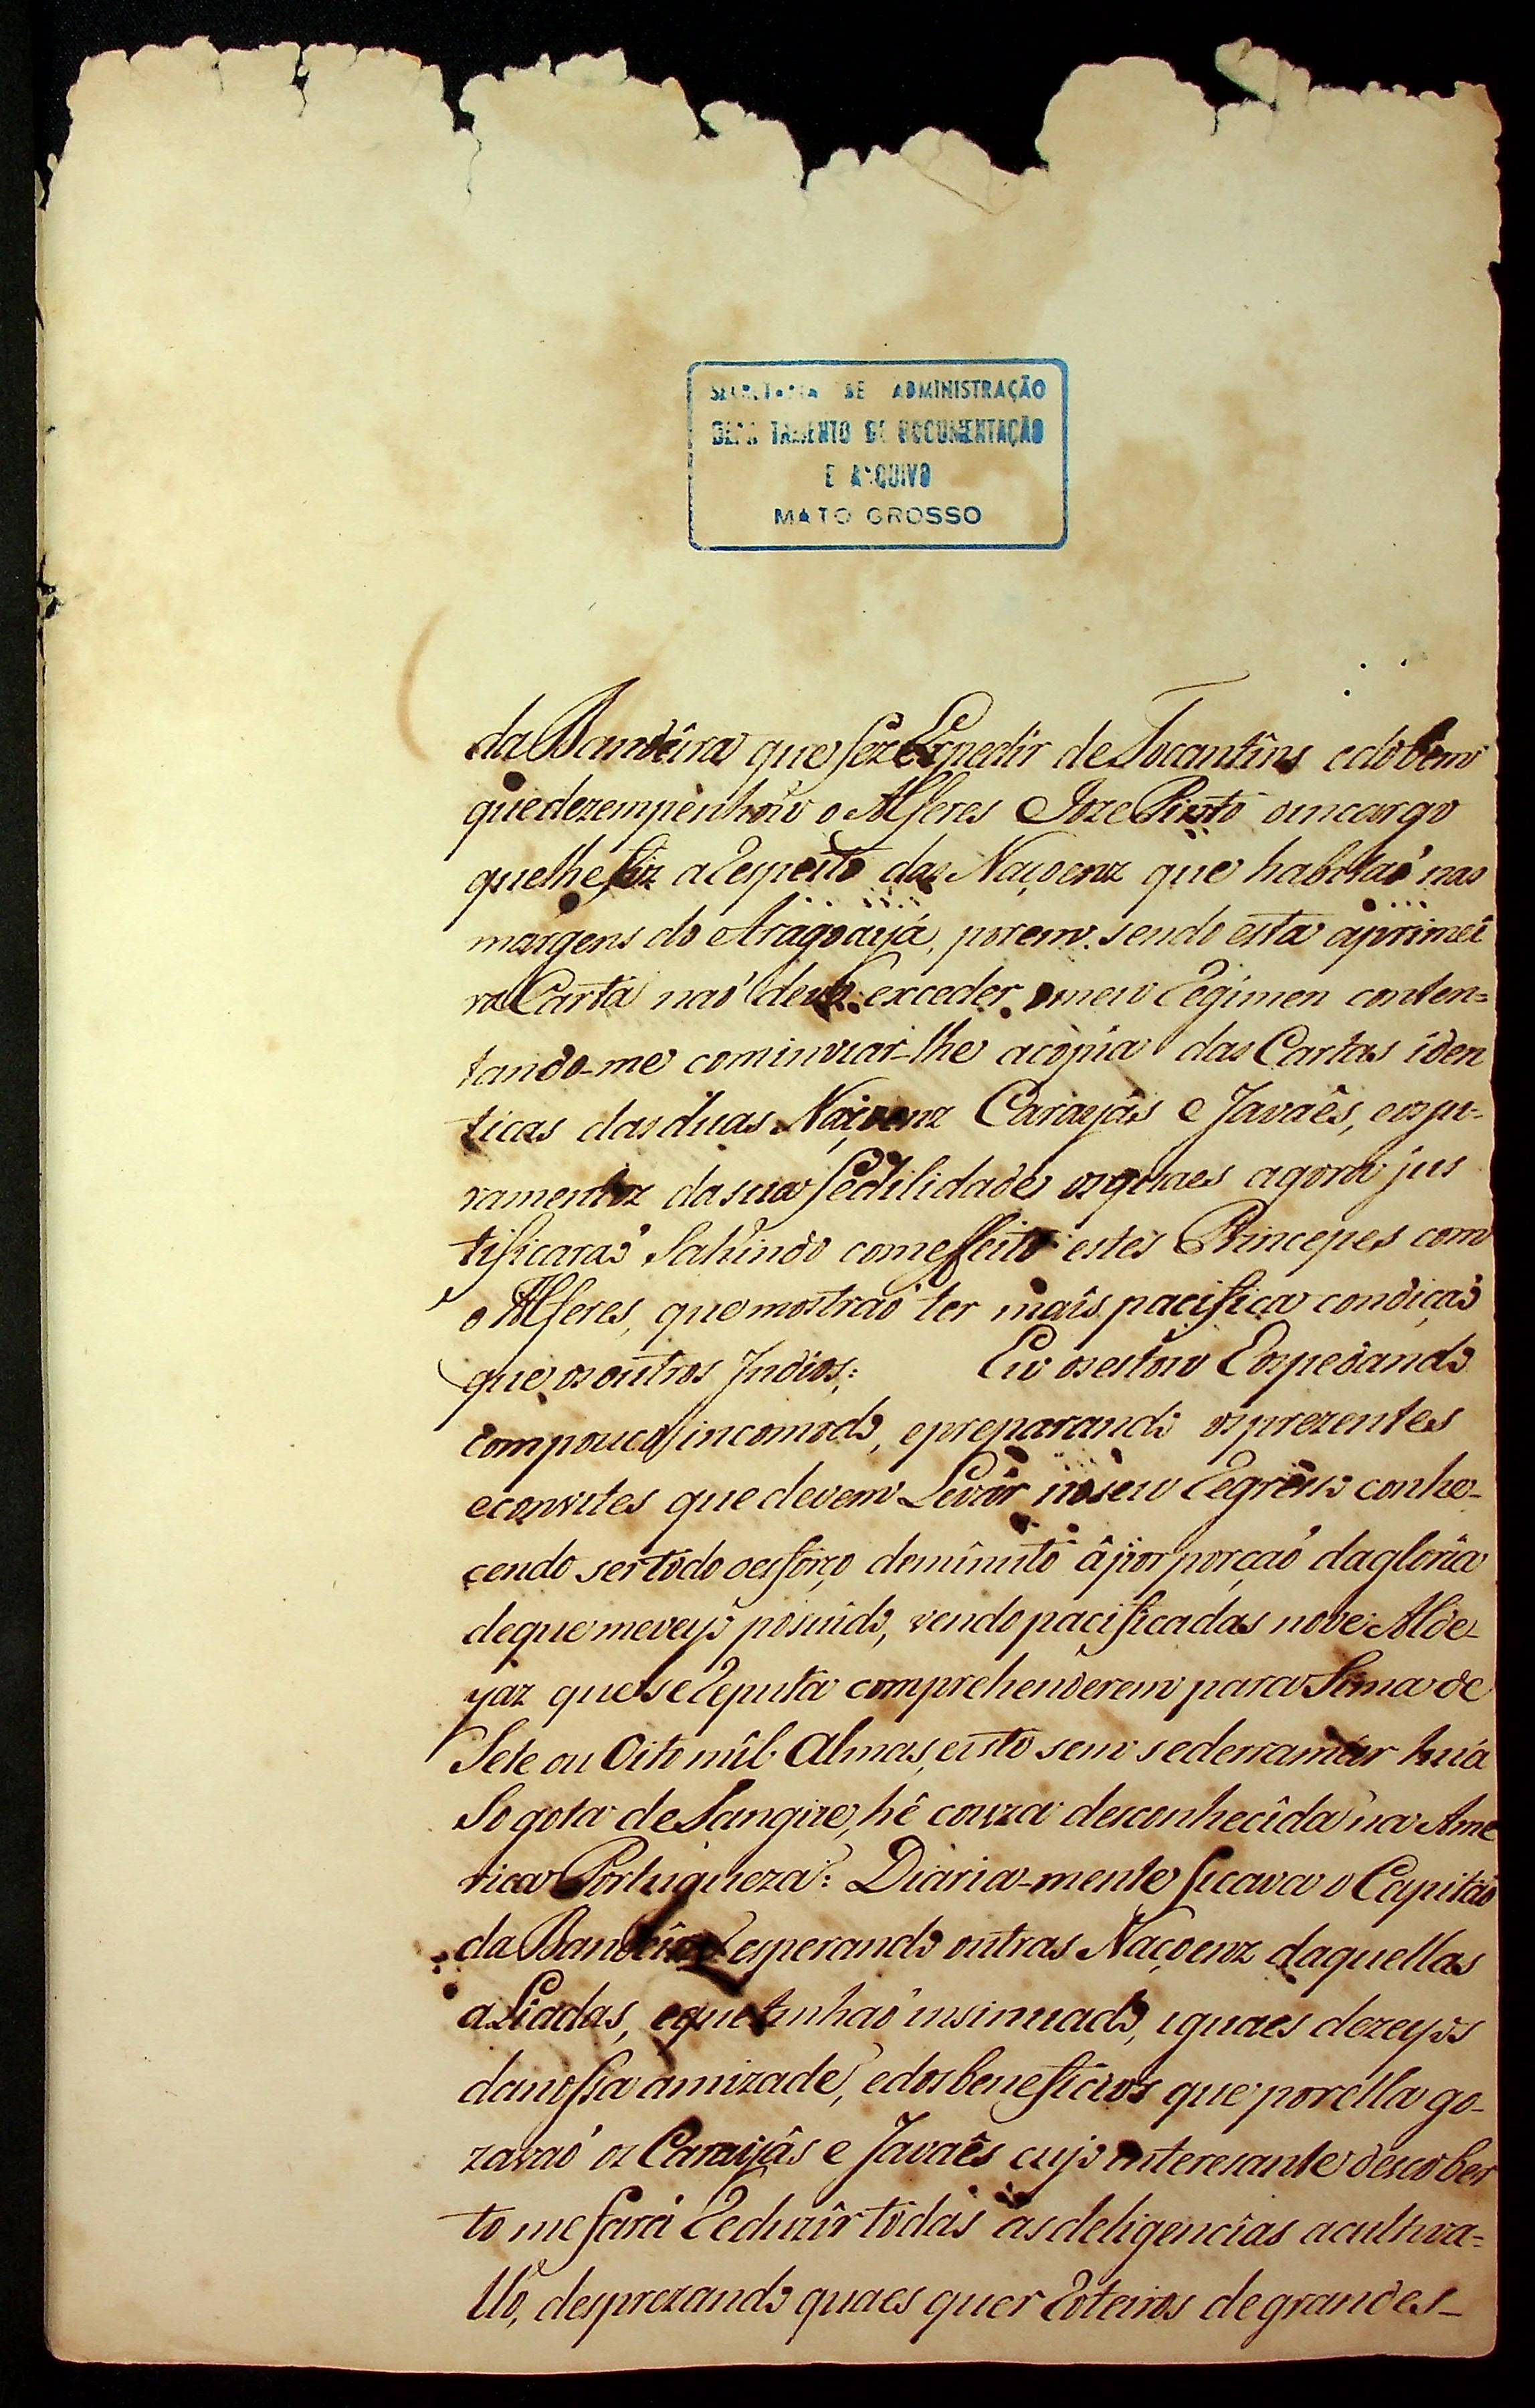 SECRETARIA DE ADMINISTRAÇÃO
DEPARTAMENTO DE DOCUMENTAÇÃO
E ARQUIVO
MATO GROSSO
da Bandeira que fêz Expedir de Tocantîns e do bem
que dezempenhou o Alferes Joze Pinto o incargo
que lhe fiz a respeito das Naçoenz que habitaõ nas
margens do Aragoayá, porem sendo esta a primei
ra Carta naõ devo exceder o meu regimen conten=
tando-me com inviar-lhe a cópia das Cartas iden
ticas das duas Naçoenz Carayâs e Javaês, e os ju-
ramentoz da sua fedilidade os quaes agora jus
tificaraõ Sahindo com effeito estes Princepes com
o Alferes, que mostraõ ter maîs pacifica condiçaõ
que os outros Indios: Eu os estou Ospedando
com pouco incomodo, e preparando os prezentes
e convites que devem Levar no seu regreso conhe-
cendo ser tôdo o esforço demînuto â proporçaõ da gloria
de que me vejo posuido, vendo pacificadas nove Alde-
yaz que se reputa comprehenderem para Sima de
Sete ou Oito mîl Almas, e isto sem se derramar huá
So gota de Sangue, hê couza desconhecîda na Ame
rica Portugueza: Diaria-mente ficava o Capitaõ
da Bandeira esperando outras Naçoenz daquellas
aLiadas, e que tinhaõ insinuado, iguaes dezeyos
da nossa amizade, e dos beneficios que por ella go-
zavaõ os Carayâs e Javaês cujo interesante descober
to me fará reduzir tôdas as deligencîas a cultiva=
llo, desprezando quaes quer roteiros de grandes_